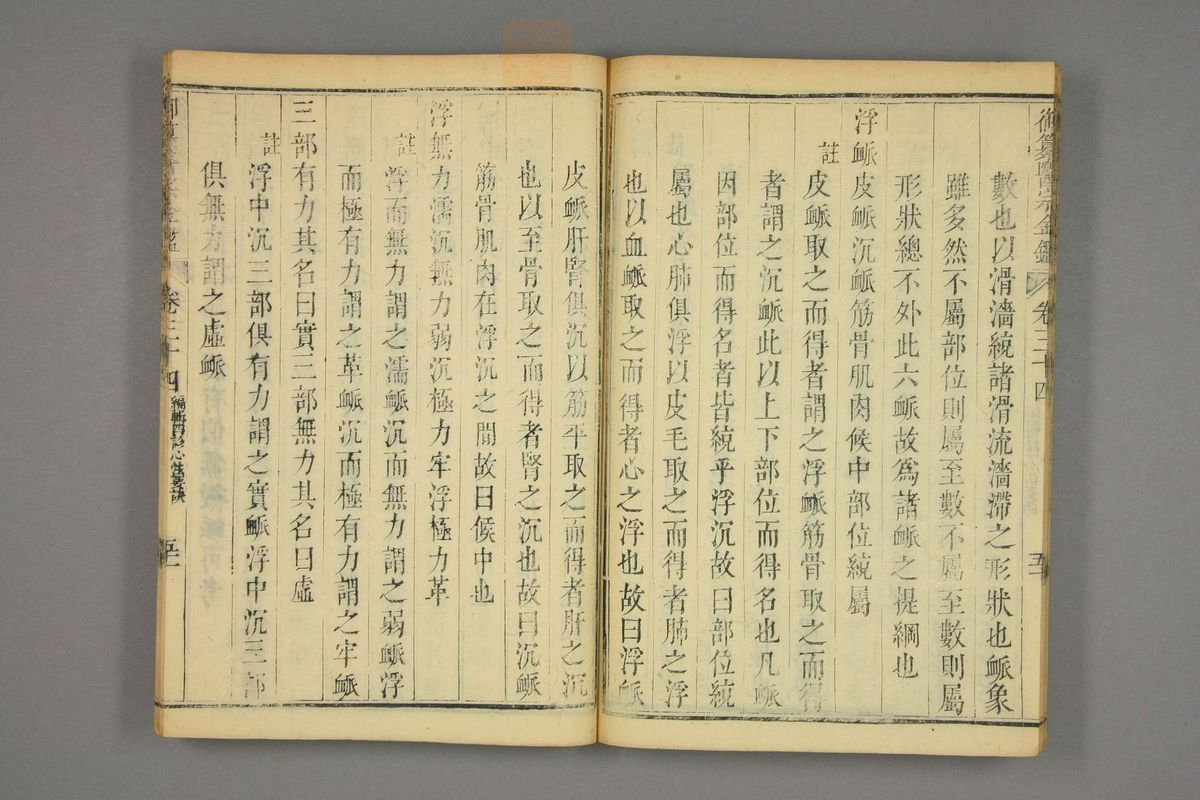 御纂醫宗金鑑 卷三十四 五一
數也以滑濇統諸滑流濇滯之形狀也䘑象
雖多然不屬部位則屬至數不屬至數則屬
形狀總不外此六䘑故爲諸䘑之提綱也
浮䘑皮䘑沉䘑筋骨肌肉候中部位統屬
註皮䘑取之而得者謂之浮䘑筋骨取之而得
者謂之沉䘑此以上下部位而得名也凡䘑
因部位而得名者皆統乎浮沉故曰部位統
屬也心肺俱浮以皮毛取之而得者肺之浮
也以血䘑取之而得者心之浮也故曰浮䘑
皮䘑肝腎俱沉以筋平取之而得者肝之沉
也以至骨取之而得者腎之沉也故曰沉䘑
筋骨肌肉在浮沉之間故曰候中也
浮無力濡沉無力弱沉極力牢浮極力革
註浮而無力謂之濡䘑沉而無力謂之弱䘑浮
而極有力謂之革䘑沉而極有力謂之牢䘑
三部有力其名曰實三部無力其名曰虛
註浮中沉三部俱有力謂之實䘑浮中沉三部
俱無力謂之虛䘑
卷三十四 編輯四診心法要訣